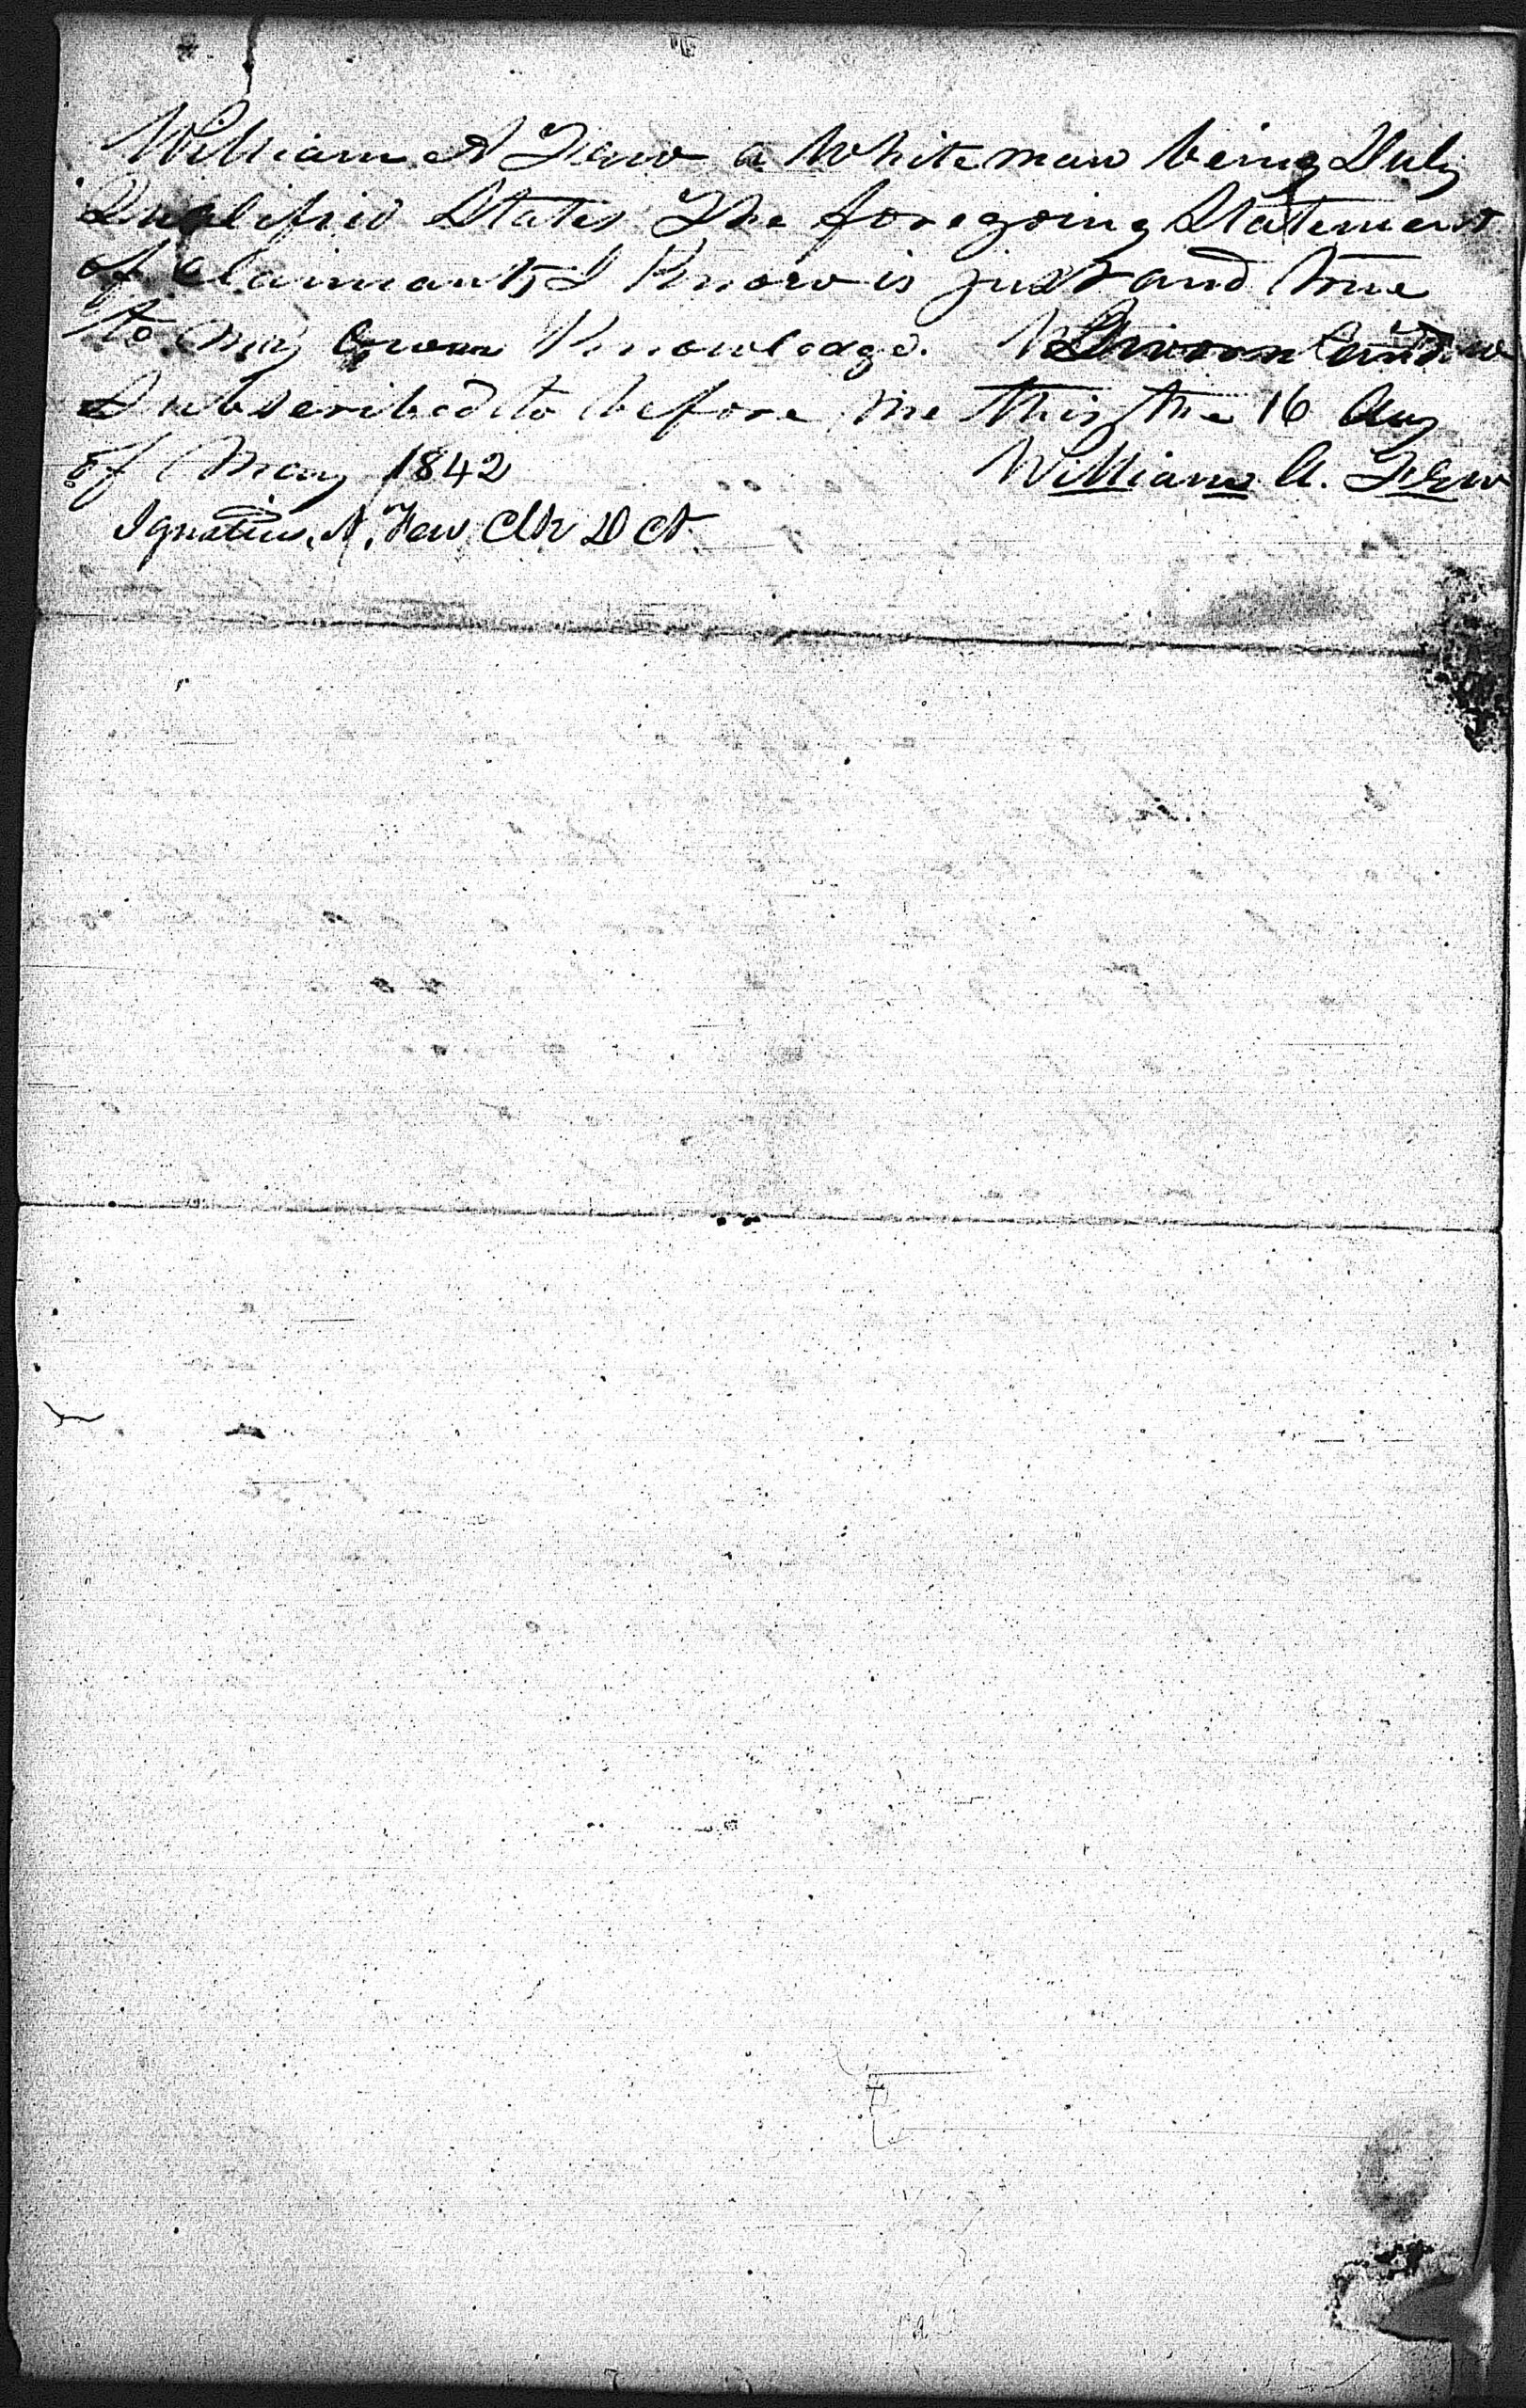 William A Few a White man being Duly
Qualified States The foregoing Statement
of Claimants I Know is just and true
to my Own Knowledge. Sworn and
Subscribed to before me this the 16 day
of May 1842 William A. Few
Ignatius A. Few Clk D Ct